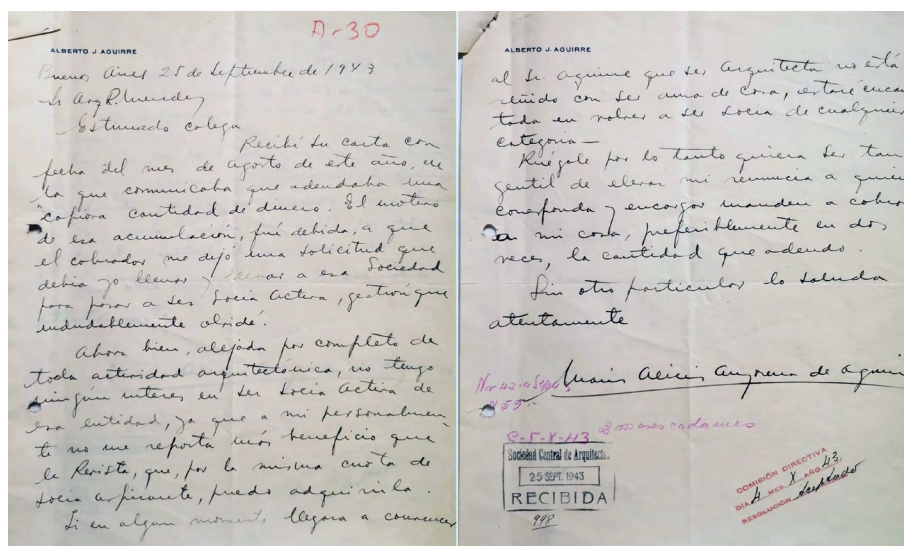 A-30
ALBERTO J. AGUIRRE
Buenos Aires 25 de Septiembre de 1943
Sr Arq R. Mendez
Estimado colega
Recibí su carta con
fecha del mes de Agosto de este año, en
la que comunicaba que adeudaba una
copiosa cantidad de dinero. El motivo
de esa acumulación, fué debida, a que
el cobrador me dejó una solicitud que
debía yo llenar y llevar a esa Sociedad
para pasar a ser Socia Activa, gestión que
indudablemente olvidé.
Ahora bien, alejada por completo de
toda actividad arquitectónica, no tengo
ningún interes en ser Socia Activa de
esa entidad, ya que a mi personalmen
te no me reporta más beneficio que
la Revista, que, por la misma cuota de
socia aspirante, puedo adquirirla.
Si en algun momento llegara a convencer
ALBERTO J. AGUIRRE
al Sr. Aguirre que ser Arquitecta no está
reñido con ser ama de casa, estaré encan
tada en volver a ser socia de cualquier
categoria—
Ruégole por lo tanto quiera ser tan
gentil de elevar mi renuncia a quien
corresponda y encargar manden a cobrar
a mi casa, preferiblemente en dos
veces, la cantidad que adeudo.
Sin otro particular lo saluda
atentamente
Maria Alicia de Aguirre
C-5-X-43
Sociedad Central de Arquitectos
25 SEPT. 1943
RECIBIDA
998
COMISIÓN DIRECTIVA
DÍA 4 MES X AÑO 43
RESOLUCIÓN Aceptado